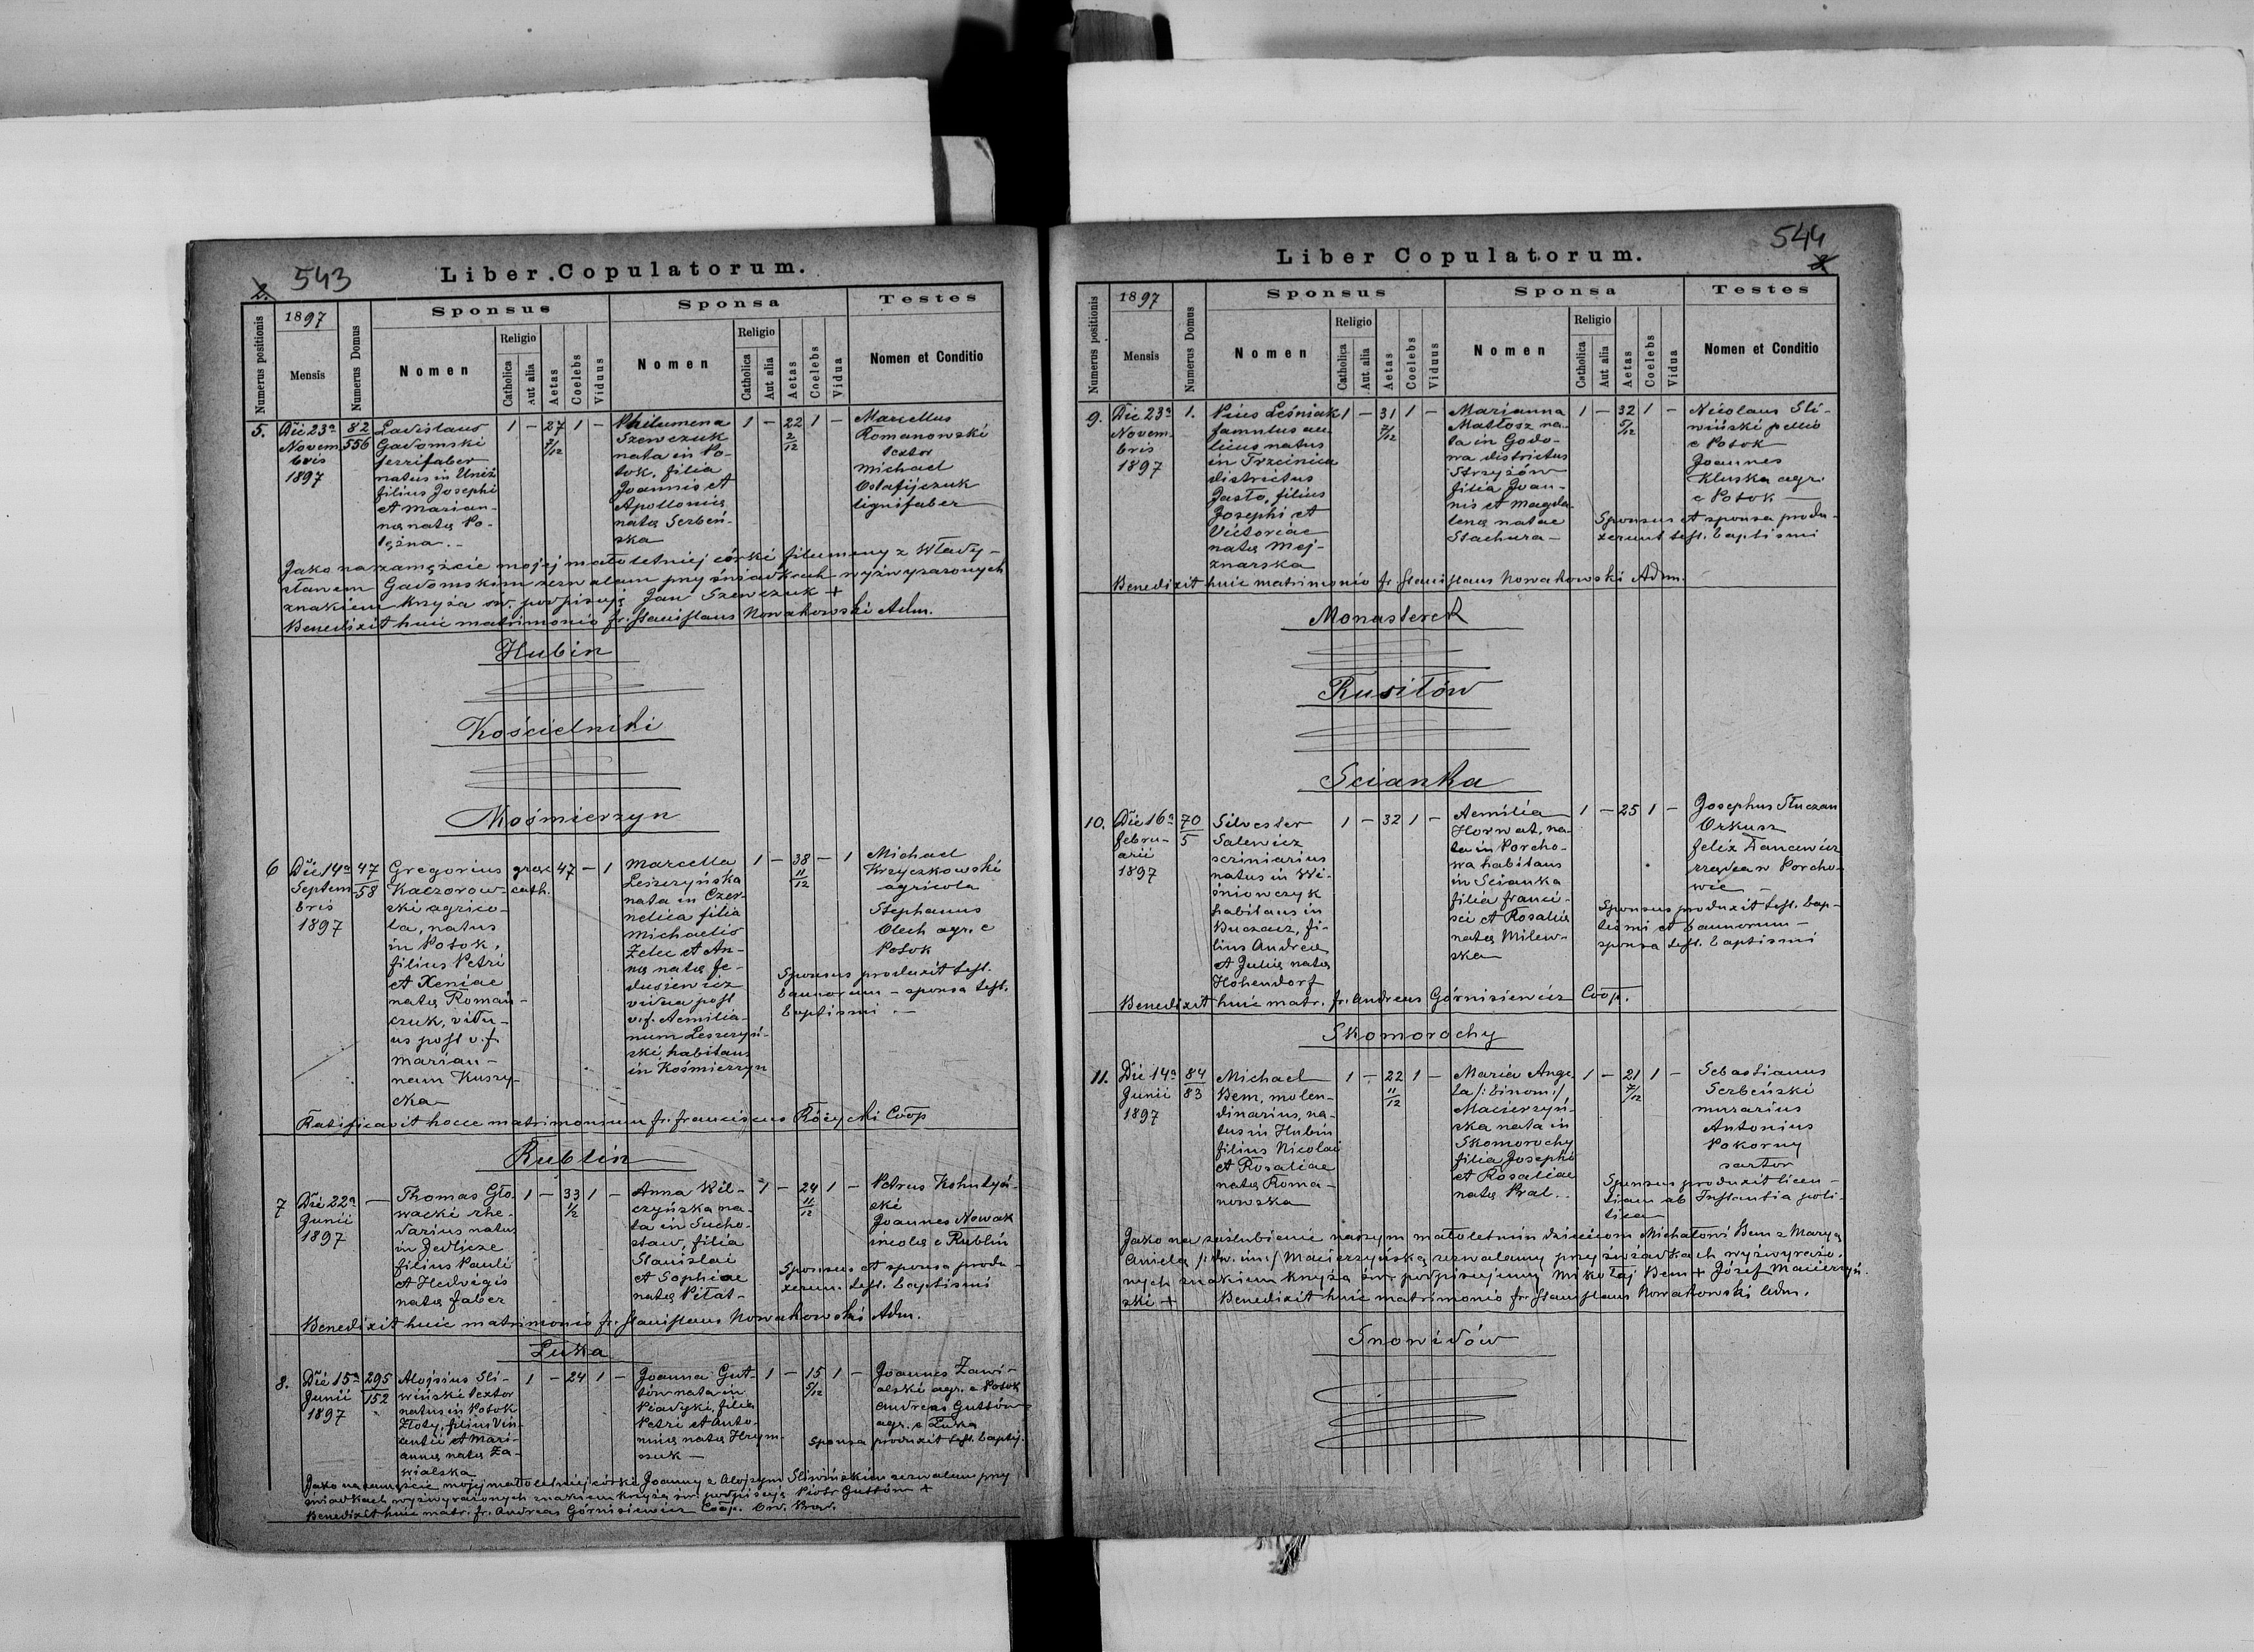 2. 543
Liber Copulatorum.
Numerus positionis
1897
Mensis
Numerus Domus
Sponsus
Nomen
Religio
Catholica
Aut alia
Aetas
Coelebs
Viduus
Sponsa
Nomen
Religio
Catholica
Aut alia
Aetas
Coelebs
Vidua
Testes
Nomen et Conditio
5.
Die 23ª
Novem
bris
1897
82
556
Ladislaus
Gadomski
ferrifaber
natus in Uniż
filius Josephi
et Marian-
nae natae Po-
1 – 27 7/12 1 –
Philumena
Szewczuk
nata in Po-
tok, filia
Joannis et
Apolloniae
natae Serbeń-
ska
1 – 22 2/12 1 –
Marcellus
Romanowski
textor
Michael
Ostafijczuk
lignifaber
Jako na zamęźcie mojej małoletniej córki Filumeny z Włady-
sławem Gadomskim zezwalam przy świadkach wyżwyrażonych
znakiem krzyża św. podpisuję Jan Szewczuk +
Benedixit huic matrimonio fr. Stanislaus Nowakowski Adm.
Hubin
Kościelniki
Kośmierzyn
6
Die 14ª
Septem
bris
1897
47
58
Gregorius
Kaczorow-
ski agrico-
la, natus
in Potok,
filius Petri
et Xeniae
natae Romań-
czuk, vidu-
us post v. f.
Marian-
nam Kuszy-
cka
graec
cath.
47 – 1
Marcella
Leszczyńska
nata in Czer-
nelica filia
Michaelis
Zelec et An-
nae natae Fe-
dusiewicz
vidua post
v. f. Aemilia-
num Leszczyń-
ski, habitans
in Kośmierzyn
1 – 38 11/12 – 1
Michael
Krzyczkowski
agricola
Stephanus
Olech agr. e
Potok
Sponsus produxit test.
bannorum – sponsa test.
baptismi . –
Ratificavit hocce matrimonium fr. Franciscus Różycki Coop
Rublin
7
Die 22ª
Junii
1897
–
Thomas Gło-
wacki rhe-
darius natus
in Jedlicze
filius Pauli
et Hedvigis
natae Faber
1 – 33 1/12 1 –
Anna Wil-
czyńska na-
ta in Sucho-
staw, filia
Stanislai
et Sophiae
natae Piłat-
1 – 24 11/12 1 –
Petrus Kohutyń-
ski
Joannes Nowak
incolae e Rublin
Sponsus et sponsa produ-
xerunt test. baptismi
Benedixit huic matrimonio fr. Stanislaus Nowakowski Adm.
Łuka
8.
Die 15ª
Junii
1897
295
152
Alojsius Sli-
wiński textor
natus in Potok
Złoty, filius Vin-
centii et Mari-
annae natae Za-
wialska
1 – 24 1 –
Joanna Gut-
tów nata in
Piadyki, filia
Petri et Anto-
niae natae Hrym-
czuk –
1 – 15 5/12 1 –
Joannes Zawi-
alski agr. e Potok
Andreas Guttów
agr. e Łuka
Sponsa produxit test. baptis.
Jako na zamęźcie mojej małoletniej córki Joanny z Alojzym Śliwińskim zezwalam przy
świadkach wyżwyrażonych znakiem krzyża św. podpisuję Piotr Guttów +
Benedixit huic matr. fr. Andreas Górnisiewicz Coop. Ord. Praed.
544
Liber Copulatorum.
Numerus positionis
1897
Mensis
Numerus Domus
Sponsus
Nomen
Religio
Catholica
Aut alia
Aetas
Coelebs
Viduus
Sponsa
Nomen
Religio
Catholica
Aut alia
Aetas
Coelebs
Vidua
Testes
Nomen et Conditio
9.
Die 23ª
Novem-
bris
1897
1.
Pius Leśniak
famulus au
licus natus
in Trzcinica
districtus
Jasło, filius
Josephi et
Victoriae
natae Moj-
znarska
1 – 31 7/12 1 –
Marianna
Matłosz na-
ta in Godo-
wa districtus
Strzyżów
filia Joan-
nis et Magda-
lenae natae
Stachura –
1 – 32 5/12 1 –
Nicolaus Sli-
wiński pellio
e Potok
Joannes
Kluska agr.
e Potok –
Sponsus et sponsa produ-
xerunt test. baptismi
Benedixit huic matrimonio fr. Stanislaus Nowakowski Adm.
Monasterek
Rusiłów
Scianka
10.
Die 16ª
Febru-
arii
1897
70
5
Silvester
Salewicz
scriniarius
natus in Wi-
śniowczyk
habitans in
Buczacz, fi-
lius Andreae
et Juliae natae
Hohendorf
1 – 32 1 –
Aemilia
Horwat, na-
ta in Porcho-
wa habitans
in Scianka
filia Franci-
sci et Rosaliae
natae Milew-
ska
1 – 25 1 –
Josephus Słuczan
Orkusz
Felix Tancewicz
rządca w Porcho-
wie –
Sponsus produxit test. bap-
tismi et bannorum –
sponsa test. baptismi
Benedixit huic matr. fr. Andreas Górnisiewicz Coop.
Skomorochy
11.
Die 14ª
Junii
1897
84
83
Michael
Bem, molen-
dinarius, na-
tus in Hubin
filius Nicolai
et Rosaliae
natae Roma-
nowska
1 – 22 11/12 1 –
Maria Ange-
la /: binom:/
Macierzyń-
ska nata in
Skomorochy
filia Josephi
et Rosaliae
natae Bral..
1 – 21 7/12 1 –
Sebastianus
Serbeński
murarius
Antonius
Pokorny
sartor
Sponsus produxit licen-
tiam ab Instantia poli-
tica
Jako na zaślubienie naszym małoletnim dzieciom Michałowi Bem z Maryą
Anielą /: dw. im:/ Macierzyńską zezwalamy przy świadkach wyżwyrażo-
nych znakiem krzyża św. podpisujemy Mikołaj Bem + Józef Macierzyń-
ski + Benedixit huic matrimonio fr. Stanislaus Nowakowski Adm.
Snowidów